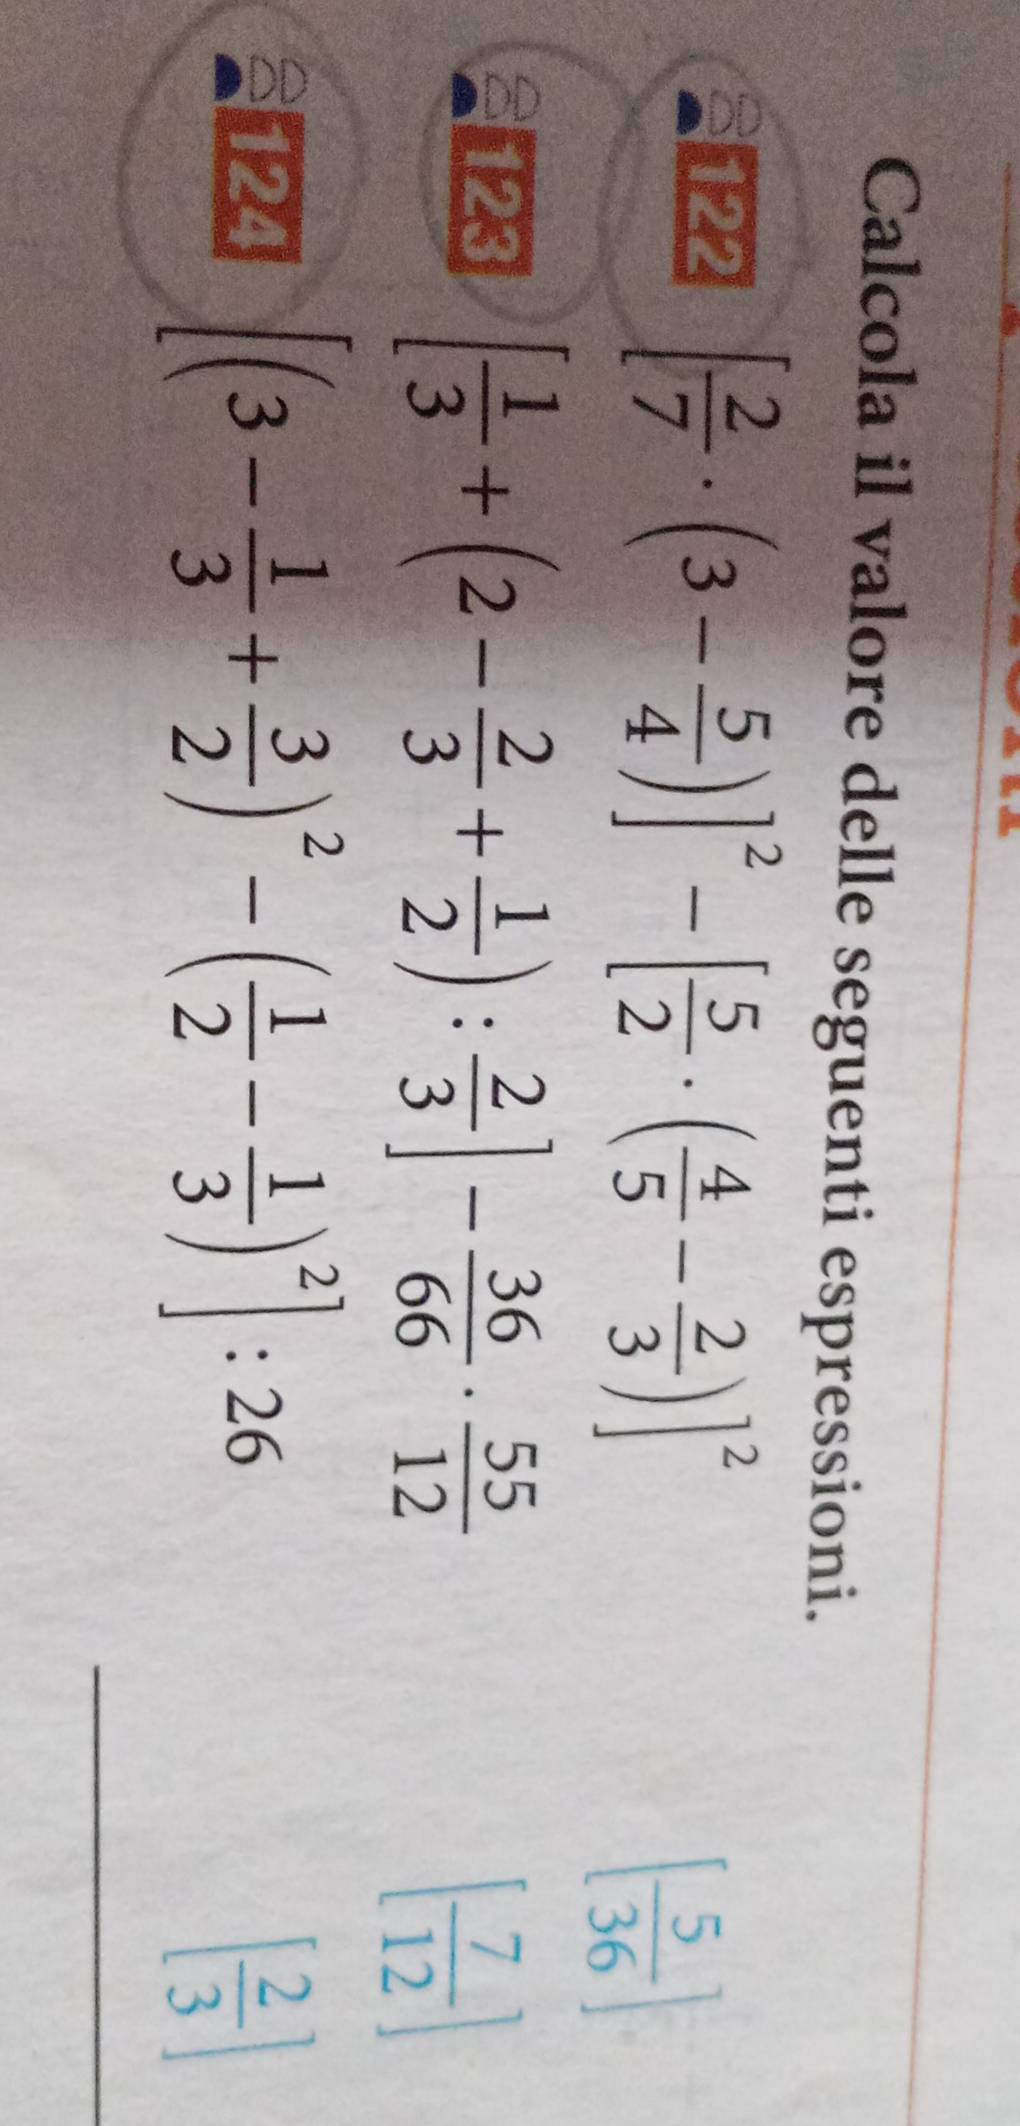 Calcola il valore delle seguenti espressioni.
DD 122 [2/7 · (3 − 5/4)]² − [5/2 · (4/5 − 2/3)]² [5/36]
DD 123 [1/3 + (2 − 2/3 + 1/2) : 2/3] − 36/66 · 55/12 [7/12]
DD 124 [(3 − 1/3 + 3/2)² − (1/2 − 1/3)²] : 26 [2/3]